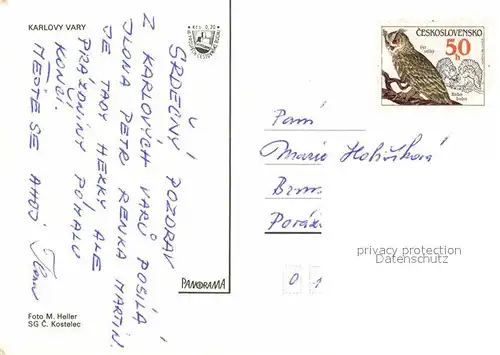 KARLOVY VARY
Kčs 0,20
SRDEČNÝ POZDRAV
Z KARLOVÝCH VARŮ POSÍLÁ
ILONA PETR RENKA MARTIN.
JE TADY HEZKY ALE
PRÁZDNINY POMALU
KONČÍ.
MĚJTE SE AHOJ
Foto M. Heller
SG Č. Kostelec
PANORAMA
ČESKOSLOVENSKO
Výr velký
50
h
Bubo bubo
Paní
Marie
Brno
0 1
privacy protection
Datenschutz